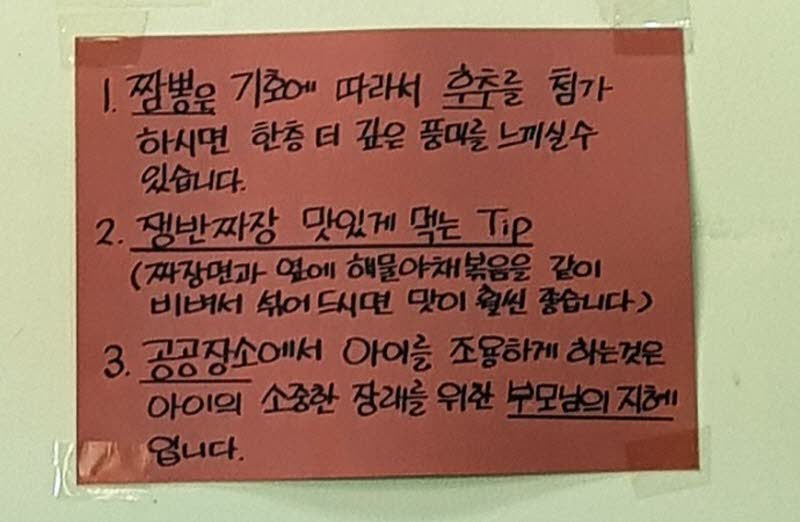 1. 짬뽕은 기호에 따라서 후추를 첨가
하시면 한층 더 깊은 풍미를 느끼실수
있습니다.
2. 쟁반짜장 맛있게 먹는 Tip
(짜장면과 옆에 해물야채볶음을 같이
비벼서 섞어 드시면 맛이 훨씬 좋습니다)
3. 공공장소에서 아이를 조용하게 하는것은
아이의 소중한 장래를 위한 부모님의 지혜
입니다.